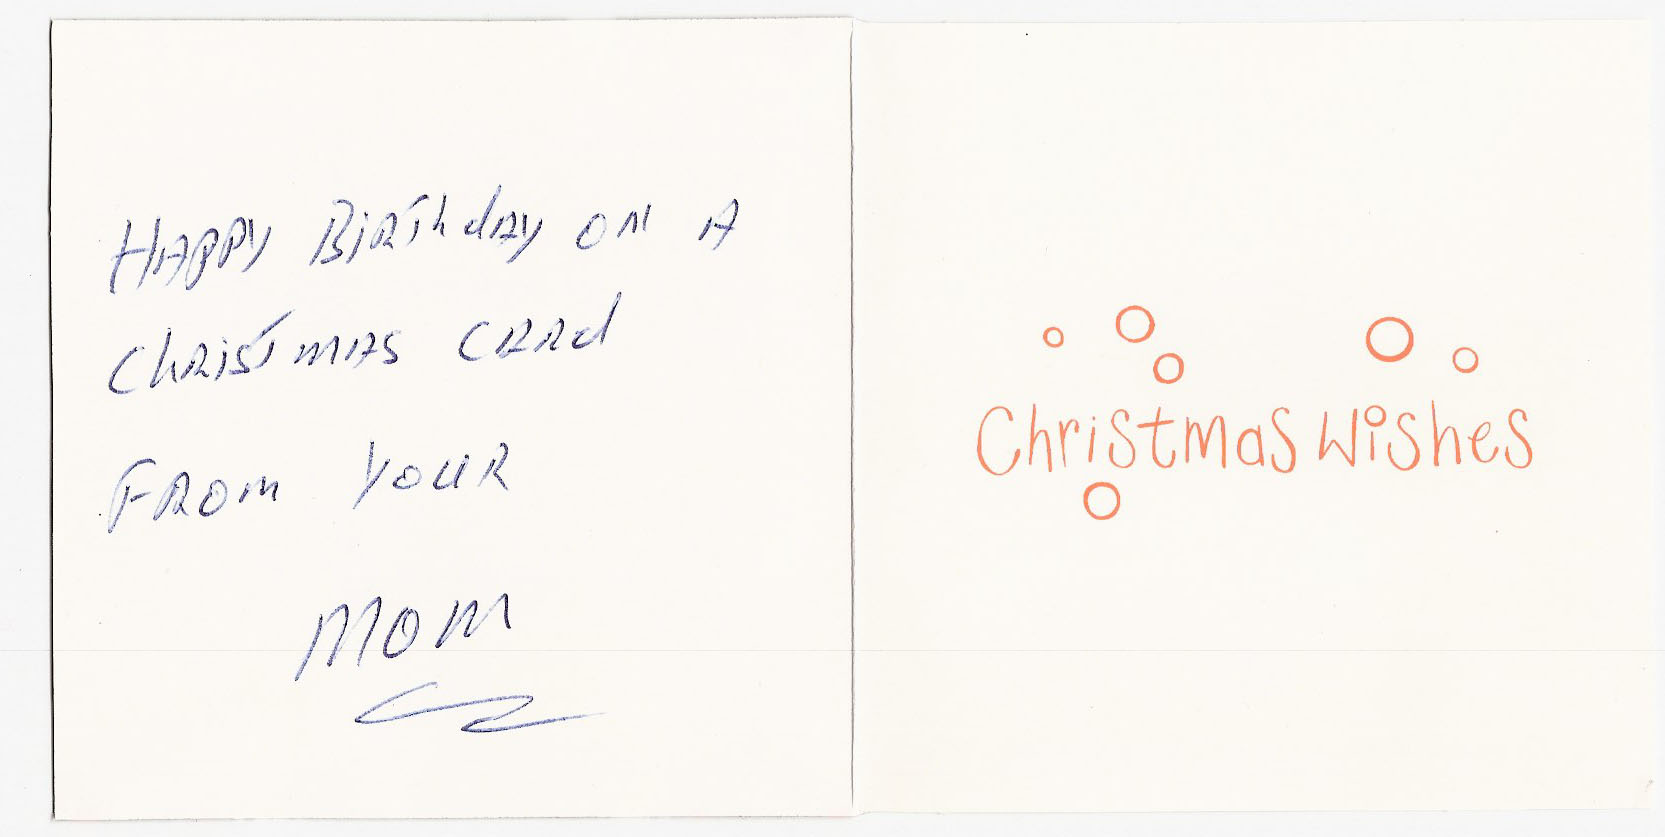 Happy Birthday on a
Christmas card
From your
Mom
Christmas Wishes